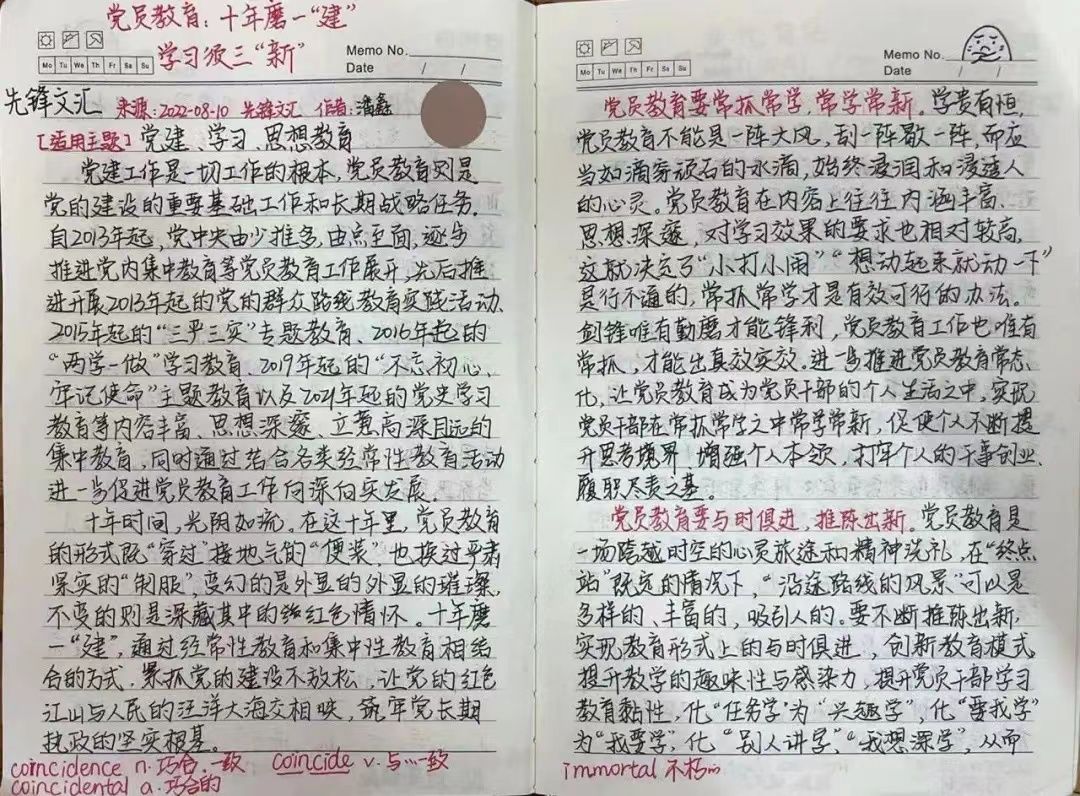 党员教育：十年磨一“建”
学习须三“新”
Mo Tu We Th Fr Sa Su
Memo No.
Date / /
先锋文汇 来源：2022-08-10 先锋文汇 作者：潘鑫
[适用主题] 党建、学习、思想教育
党建工作是一切工作的根本，党员教育则是
党的建设的重要基础工作和长期战略任务。
自2013年起，党中央由少推多，由点至面，逐步
推进党内集中教育等党员教育工作展开，先后推
进开展2013年起的党的群众路线教育实践活动、
2015年起的“三严三实”专题教育、2016年起的
“两学一做”学习教育、2019年起的“不忘初心、
牢记使命”主题教育以及2021年起的党史学习
教育等内容丰富、思想深邃、立意高深且远的
集中教育，同时通过结合各类经常性教育活动
进一步促进党员教育工作向深向实发展。
十年时间，光阴如流。在这十年里，党员教育
的形式既“穿过”接地气的“便装”，也换过严肃
紧实的“制服”，变幻的是外显的外显的璀璨，
不变的则是深藏其中的红色情怀。十年磨
一“建”，通过经常性教育和集中性教育相结
合的方式，紧抓党的建设不放松，让党的红色
江山与人民的汪洋大海交相映，筑牢党长期
执政的坚实根基。
coincidence n. 巧合，一致 coincide v. 与…一致
coincidental a. 巧合的
Mo Tu We Th Fr Sa Su
Memo No.
Date / /
党员教育要常抓常学，常学常新。学贵有恒，
党员教育不能是一阵大风，刮一阵歇一阵，而应
当如滴穿顽石的水滴，始终浸润和浸透人
的心灵。党员教育在内容上往往内涵丰富、
思想深邃，对学习效果的要求也相对较高，
这就决定了“小打小闹”“想动起来就动一下”
是行不通的，常抓常学才是有效可行的办法。
剑锋唯有勤磨才能锋利，党员教育工作也唯有
常抓，才能出真效实效。进一步推进党员教育常态
化，让党员教育成为党员干部的个人生活之中，实现
党员干部在常抓常学之中常学常新，促使个人不断提
升思考境界，增强个人本领，打牢个人的干事创业、
履职尽责之基。
党员教育要与时俱进，推陈出新。党员教育是
一场跨越时空的心灵旅途和精神洗礼，在“终点
站”既定的情况下，“沿途路线的风景”可以是
多样的、丰富的、吸引人的。要不断推陈出新，
实现教育形式上的与时俱进，创新教育模式
提升教学的趣味性与感染力，提升党员干部学习
教育黏性，化“任务学”为“兴趣学”，化“要我学”
为“我要学”，化“别人讲学”“我想深学”，从而
immortal 不朽的